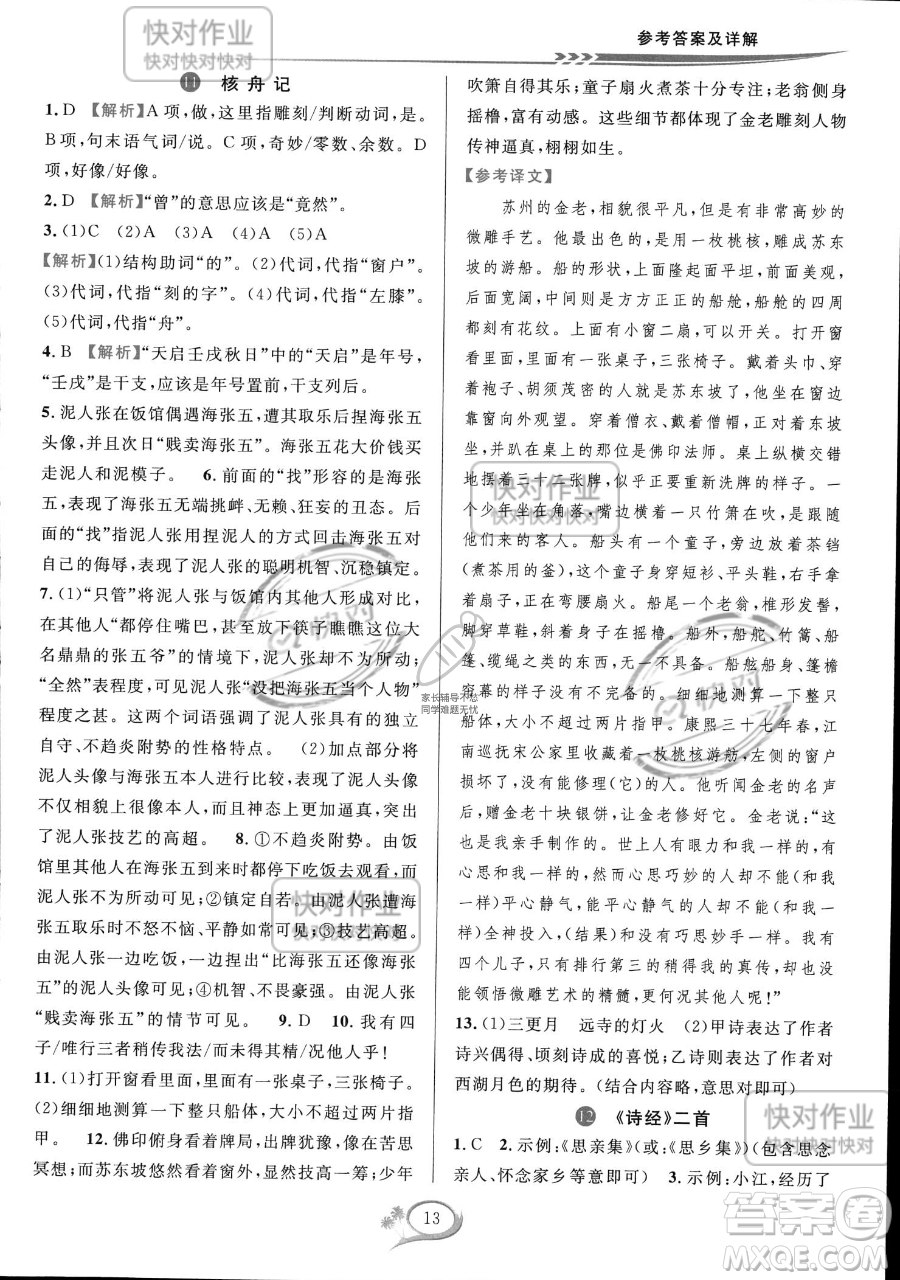 参考答案及详解
快对作业
快对快对快对
11 核舟记
1. D 【解析】A项,做,这里指雕刻/判断动词,是。
B项,句末语气词/说。C项,奇妙/零数、余数。D
项,好像/好像。
2. D 【解析】“曾”的意思应该是“竟然”。
3. (1)C (2)A (3)A (4)A (5)A
【解析】(1)结构助词“的”。(2)代词,代指“窗户”。
(3)代词,代指“刻的字”。(4)代词,代指“左膝”。
(5)代词,代指“舟”。
4. B 【解析】“天启壬戌秋日”中的“天启”是年号,
“壬戌”是干支,应该是年号置前,干支列后。
5. 泥人张在饭馆偶遇海张五,遭其取乐后捏海张五
头像,并且次日“贱卖海张五”。海张五花大价钱买
走泥人和泥模子。 6. 前面的“找”形容的是海张
五,表现了海张五无端挑衅、无赖、狂妄的丑态。后
面的“找”指泥人张用捏泥人的方式回击海张五对
自己的侮辱,表现了泥人张的聪明机智、沉稳镇定。
7. (1)“只管”将泥人张与饭馆内其他人形成对比,
在“人们都停住嘴巴,甚至放下筷子瞧瞧这位大名
鼎鼎的张五爷”的情境下,泥人张却不为所动;
“全然”表程度,可见泥人张“没把张五当个人物”
程度之甚。这两个词语强调了泥人张具有的独立
自守、不趋炎附势的性格特点。 (2)加点部分将
泥人头像与海张五本人进行比较,表现了泥人头像
不仅相貌上很像本人,而且神态上更加逼真,突出
了泥人张技艺的高超。 8. ①不趋炎附势。由饭
馆里其他人在海张五到来时停下吃饭去观看,而
泥人张不为所动可见;②镇定自若。由泥人张遭海
张五取乐时不怒不恼、平静如初可见;③技艺高超。
由泥人张一边吃饭,一边捏出“比海张五还像海张
五”的泥人头像可见;④机智、不畏豪强。由泥人张
“贱卖海张五”的情节可见。 9. D 10. 我有四
子/故行三者稍传我法/而精思终未逮/况他人乎!
11. (1)打开窗看里面,里面有一张桌子,三张椅子。
(2)细细地测算一下整个船体,大小不超过两片指
甲。 12. 佛印俯身看着牌局,出牌犹豫,像在苦思
冥想;而苏东坡悠然看着窗外,显然技高一筹;少年
吹箫自得其乐;童子扇火煮茶十分专注;老翁侧身
摇橹,富有动感。这些细节都体现了金老雕刻人物
传神逼真,栩栩如生。
【参考译文】
苏州的金老,相貌很平凡,但有非常高妙的
微雕手艺。他最出色的,是用一枚桃核,雕成苏东
坡的游船。船的形状,上面隆起底面平坦,前面美观,
后面宽阔,中间则是方方正正的船舱,船舱的四周
都刻有花纹。上面有小窗二扇,可以开关。打开窗
看里面,里面有一张桌子,三张椅子。戴着头巾、穿
着袍子、胡须茂密的应该是苏东坡了,他坐在窗边
靠窗向外观望。穿着僧衣、戴着僧帽,坐在对面
并趴在桌上的那位是佛印法师。桌上纵横交错
地摆着三十二张牌,似乎正要重新洗牌的样子。一
个少年坐在角落,横拿着一只竹箫在吹,是跟他们
一同来的客人。船头有一个童子,旁边放着茶铛
(煮茶用的釜),这个童子身穿短衫、平头鞋,右手拿
着扇子,正在弯腰扇火。船尾一个老翁,椎形发髻,
脚穿草鞋,斜着身子在摇橹。船外,船舵、竹篙、船
篷、缆绳之类的东西,无一不有。船舷船身、篷檐
帘幕的样子没有不具备的。细细地测算一下整个
船体,大小不超过两片指甲。康熙三十七年春,江
南巡抚宋公家里收藏着一枚桃核游舫,左侧的窗户
损坏了,没有能修理(它)的人。他听闻金老的名声
后,赠给金老十块银饼,让金老修好它。金老说:“这
个是我亲手制作的。世上无人能与我的心思和手
一样,然而我的手虽然和心思巧妙的人一样,但心
一样平心静气,能平心静气的人却不能与我一样
全神投入,(结果)和没有巧思妙手一样。我有
四个儿子,只排行第三的略得我的真传,但还是没
能领悟微雕艺术的精髓,更何况其他人呢!”
13. (1)三更月 远寺的灯火 (2)甲诗表达了作者
诗兴偶得、顷刻诗成的喜悦;乙诗则表达了对
西湖月色的期待。(结合内容略,意思对即可)
12 《诗经》二首
1. C 2. 示例:《思亲集》(或:《思乡集》)(包含思念
亲人、怀念家乡等意即可) 3. 示例:小江,经历了
13
快对作业
快对快对快对
快对作业
快对快对快对
快对作业
快对快对快对
快对
快对
家长辅导不愁
同学难题无忧
答案圈
MXQE.COM